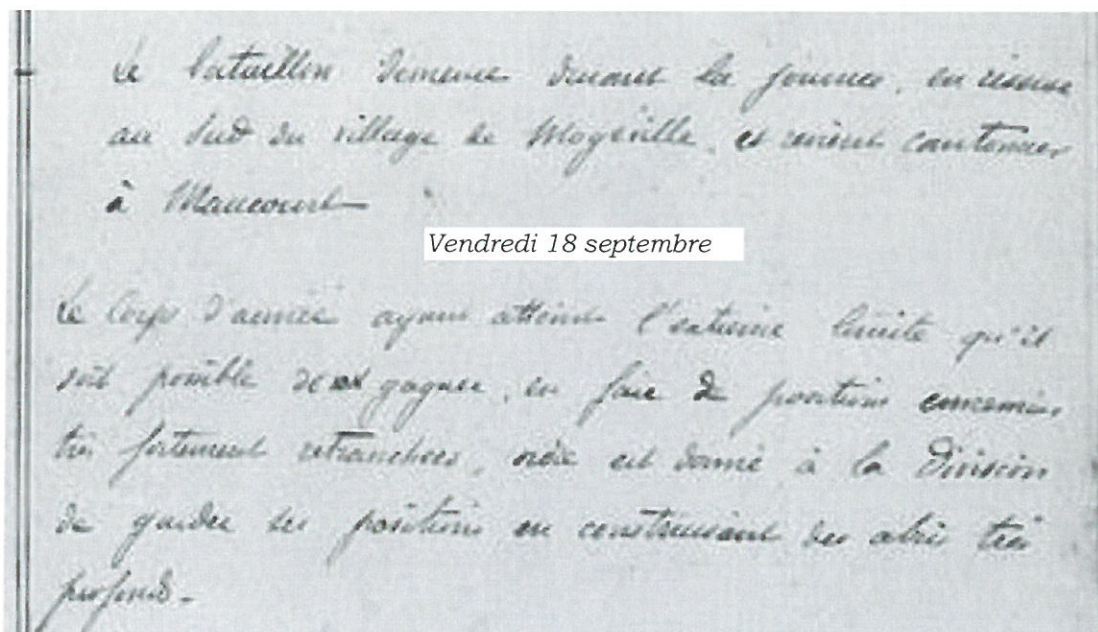 Le bataillon demeure durant la journée, en réserve
au Sud du village de Mogeville, et revient cantonner
à Maucourt
Vendredi 18 septembre
Le Corps d'armée ayant atteint l'extrême limite qu'il
soit possible de gagner, en face de positions ennemies
très fortement retranchées, ordre est donné à la Division
de garder ses positions en construisant des abris très
profond.